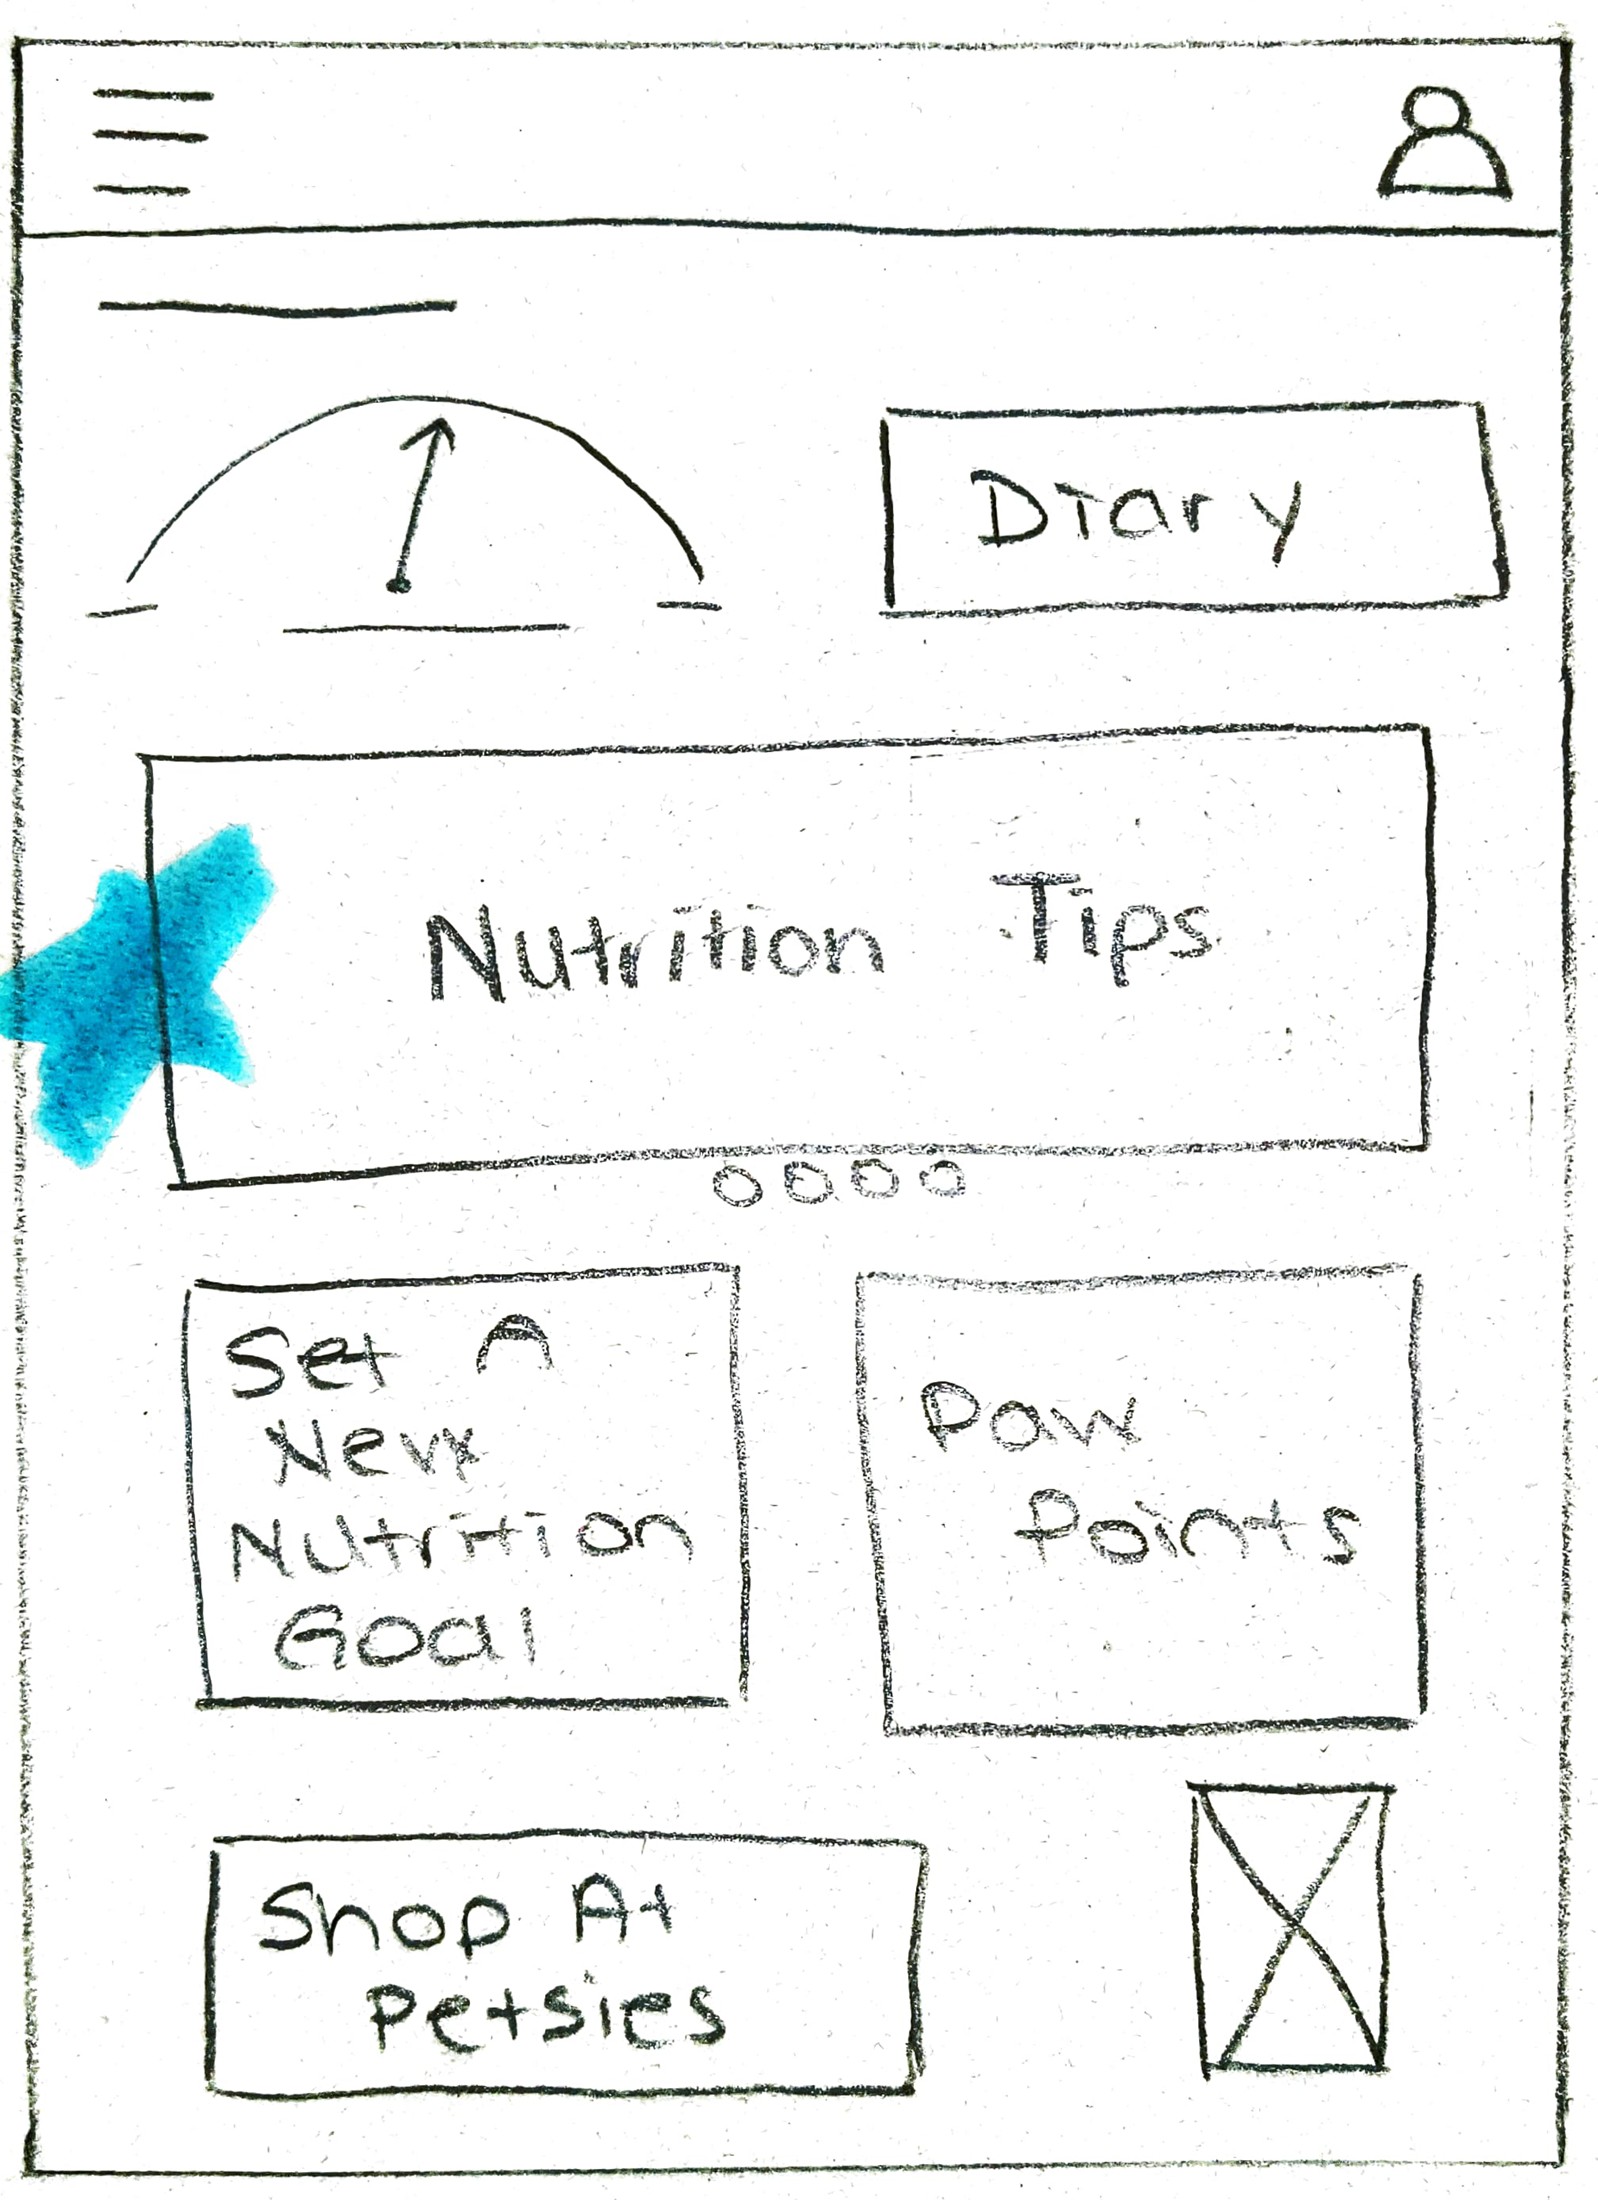 Diary
Nutrition Tips
Set A
New
Nutrition
Goal
Paw
Points
Shop At
Petsies